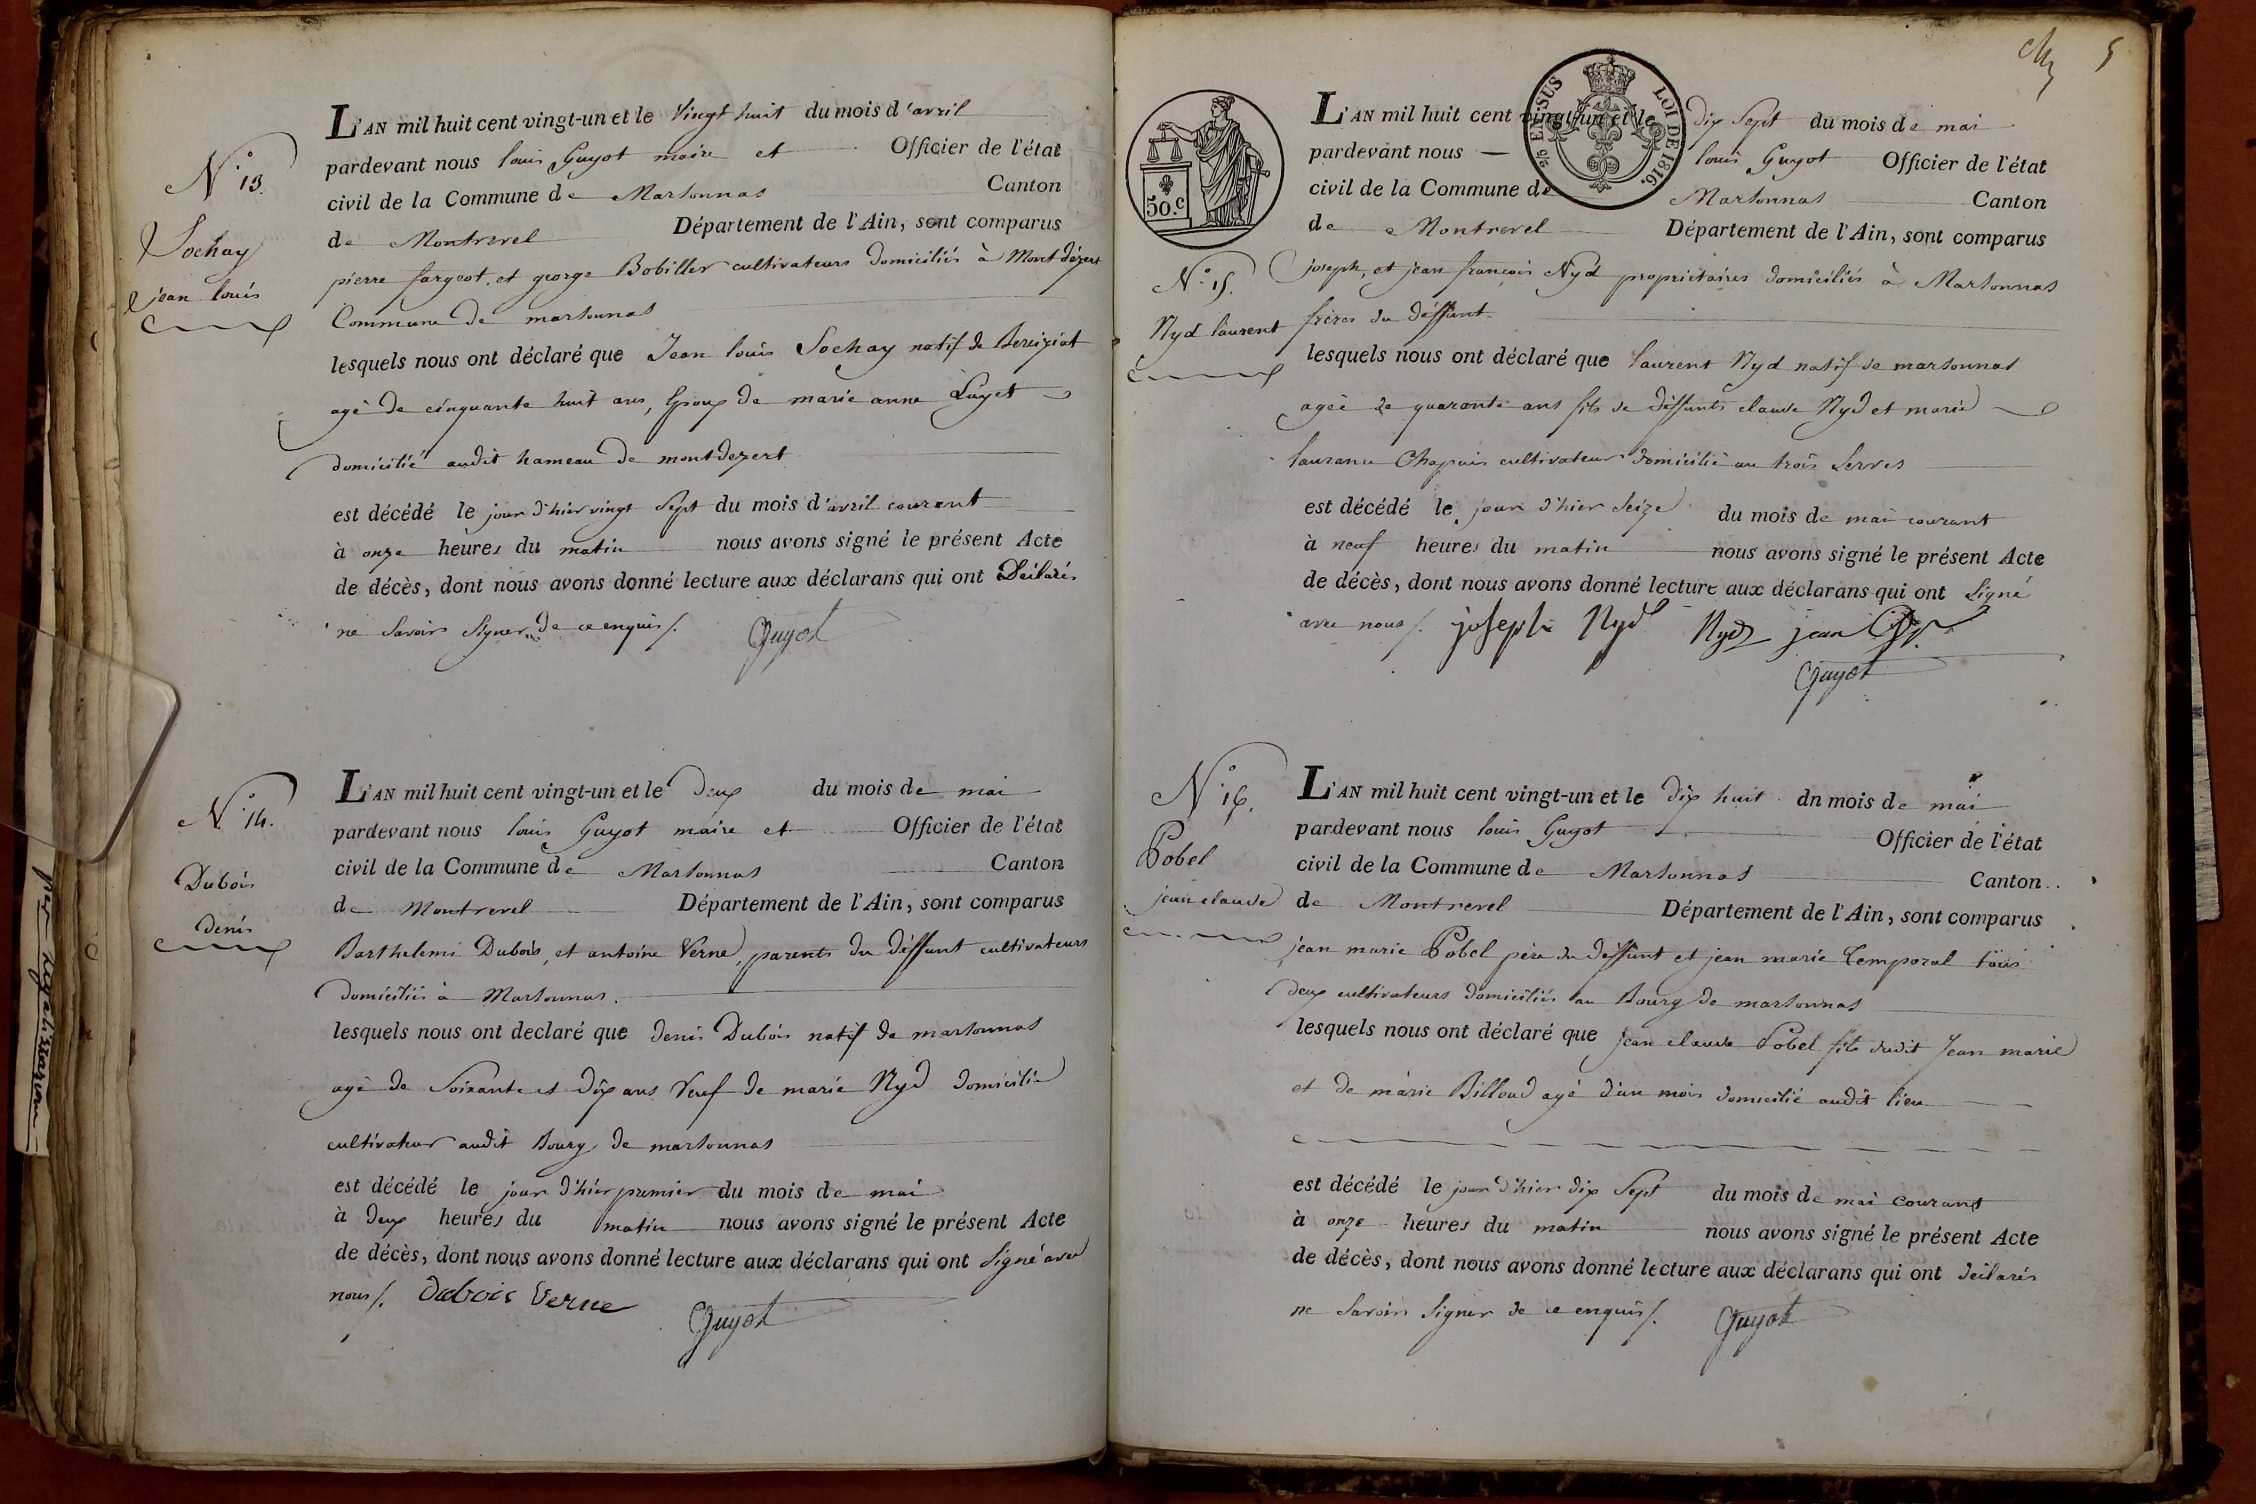 N.° 13.
Sochay
jean louis
L'AN mil huit cent vingt-un et le vingt huit du mois d'avril
pardevant nous louis Guyot maire et Officier de l'état
civil de la Commune de Marsonnas Canton
de Montrevel Département de l'Ain, sont comparus
pierre fargeot, et george Bobiller cultivateurs domiciliés à Montdézert
Commune de marsonnas
lesquels nous ont déclaré que Jean louis Sochay natif de Bereiziat
agé de cinquante huit ans, Epoux de marie anne Luyet
domicilié audit hameau de montdezert
est décédé le jour d'hier vingt Sept du mois d'avril courant
à onze heures du matin nous avons signé le présent Acte
de décès, dont nous avons donné lecture aux déclarans qui ont Déclarés
ne Savoir Signer de ce enquis /. Guyot
N.° 14.
Dubois
denis
L'AN mil huit cent vingt-un et le deux du mois de mai
pardevant nous louis Guyot maire et Officier de l'état
civil de la Commune de Marsonnas Canton
de Montrevel Département de l'Ain, sont comparus
Barthelemi Dubois, et antoine Verne, parents du déffunt cultivateurs
domiciliés à Marsonnas.
lesquels nous ont declaré que denis Dubois natif de marsonnas
agé de Soixante et dix ans Veuf de marie Nyd domicilié
cultivateur audit Bourg de marsonnas
est décédé le jour d'hier premier du mois de mai
à deux heures du matin nous avons signé le présent Acte
de décès, dont nous avons donné lecture aux déclarans qui ont Signé avec
nous /. Dubois Verne Guyot
5
50.c
EN SUS
LOI DE 1816.
N.° 15.
Nyd laurent
L'AN mil huit cent vingt-un et le dix Sept du mois de mai
pardevant nous louis Guyot Officier de l'état
civil de la Commune de Marsonnas Canton
de Montrevel Département de l'Ain, sont comparus
joseph, et jean françois Nyd propriétaires domiciliés à Marsonnas
frères du déffunt
lesquels nous ont déclaré que laurent Nyd natif de marsonnas
ageé de quarante ans fils de déffunts claude Nyd et marie
laurance Chapuis cultivateur domicilié au trois Serves
est décédé le jour d'hier Seize du mois de mai courant
à neuf heures du matin nous avons signé le présent Acte
de décès, dont nous avons donné lecture aux déclarans qui ont Signé
avec nous /. joseph Nyd Nyd jean
Guyot
N.° 16.
Pobel
jean claude
L'AN mil huit cent vingt-un et le dix huit dn mois de mai
pardevant nous louis Guyot Officier de l'état
civil de la Commune de Marsonnas Canton
de Montrevel Département de l'Ain, sont comparus
jean marie Pobel père du déffunt et jean marie Temporal tous
deux cultivateurs domiciliés au Bourg de marsonnas
lesquels nous ont déclaré que jean claude Pobel fils dudit Jean marie
et de marie Billoud agé d'un mois domicilié audit lieu
est décédé le jour d'hier dix Sept du mois de mai courant
à onze heures du matin nous avons signé le présent Acte
de décès, dont nous avons donné lecture aux déclarans qui ont déclarés
ne Savoir Signer de ce enquis /. Guyot